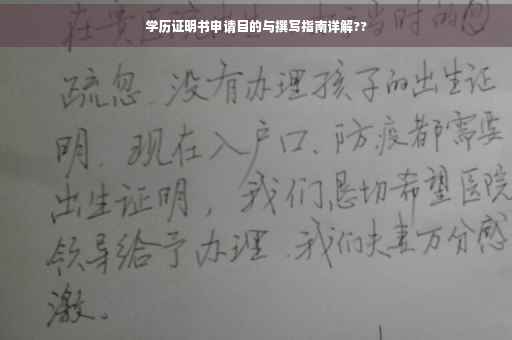 学历证明书申请目的与撰写指南详解??
当时的
疏忽、没有办理孩子的出生证
明、现在入户口、防疫都需要
出生证明，我们恳切希望医院
领导给予办理、我们夫妻万分感
激。